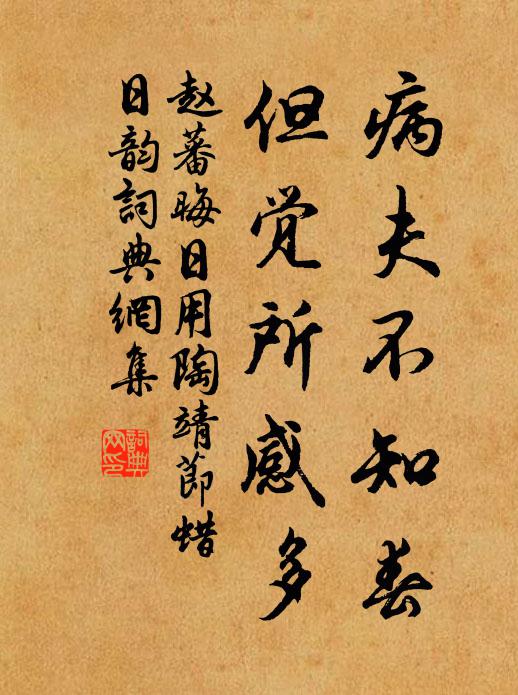 病夫不知春
但觉所感多
赵蕃晦日用陶靖節蜡
日韵詞典網集
詞典
网印